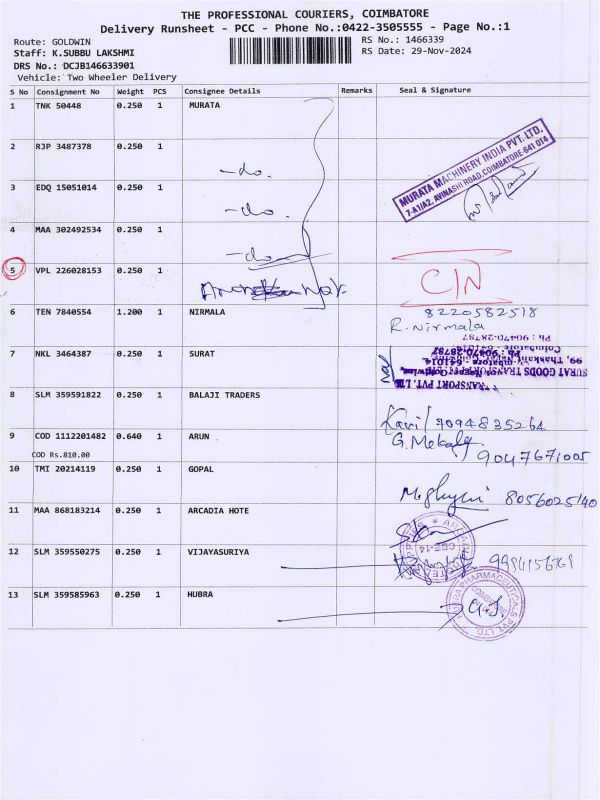 THE PROFESSIONAL COURIERS, COIMBATORE
Delivery Runsheet - PCC - Phone No.:0422-3505555 - Page No.:1
Route: GOLDWIN
Staff: K.SUBBU LAKSHMI
DRS No.: DCJB146633901
Vehicle: Two Wheeler Delivery
RS No.: 1466339
RS Date: 29-Nov-2024
S No Consignment No Weight PCS Consignee Details Remarks Seal & Signature
1 TNK 50448 0.250 1 MURATA
MURATA MACHINERY INDIA PVT. LTD.
7-A1/A2, AVINASHI ROAD, COIMBATORE-641 014
2 RJP 3487378 0.250 1
-do.
3 EDQ 15051014 0.250 1
-do.
4 MAA 302492534 0.250 1
-do
5 VPL 226028153 0.250 1
C/N
6 TEN 7840554 1.200 1 NIRMALA 8220582518
R. Nirmala
7 NKL 3464387 0.250 1 SURAT
Ph : 90470-28787
SURAT GOODS TRANSPORT PVT. LTD.
8 SLM 359591822 0.250 1 BALAJI TRADERS
Kavi / 7094835264
9 COD 1112201482 0.640 1 ARUN
COD Rs.810.00
9047671005
10 TMI 20214119 0.250 1 GOPAL
8056025140
11 MAA 868183214 0.250 1 ARCADIA HOTE
12 SLM 359550275 0.250 1 VIJAYASURIYA
13 SLM 359585963 0.250 1 HUBRA